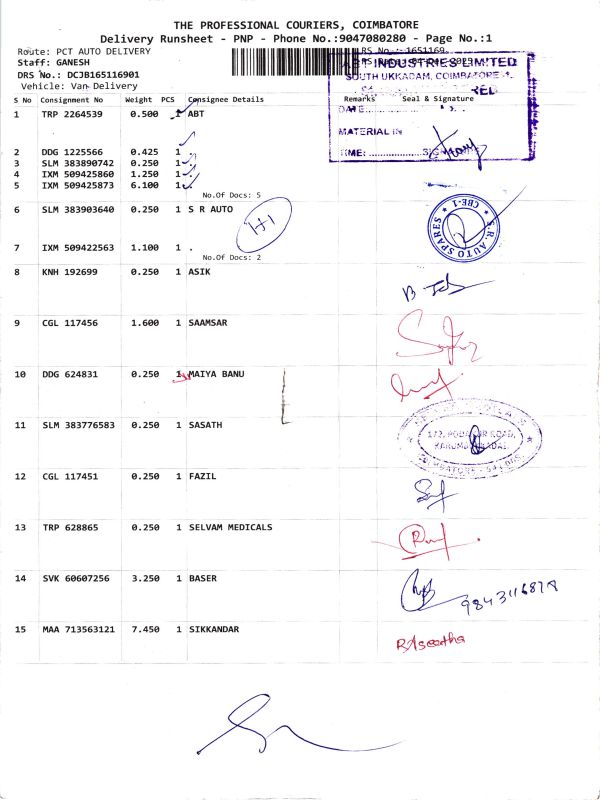 THE PROFESSIONAL COURIERS, COIMBATORE
Delivery Runsheet - PNP - Phone No.:9047080280 - Page No.:1
Route: PCT AUTO DELIVERY
RS No.: 1651169
Staff: GANESH
INDUSTRIES LIMITED
DRS No.: DCJB165116901
SOUTH UKKADAM, COIMBATORE-1.
Vehicle: Van-Delivery
S No Consignment No Weight PCS Consignee Details Remarks Seal & Signature
DATE:
1 TRP 2264539 0.500 1 ABT
MATERIAL IN
2 DDG 1225566 0.425 1 .
TIME:
3 SLM 383890742 0.250 1 .
4 IXM 509425860 1.250 1 .
5 IXM 509425873 6.100 1 .
No.Of Docs: 5
6 SLM 383903640 0.250 1 S R AUTO
1+1
S.R. AUTO SPARES
CBE-1
7 IXM 509422563 1.100 1 .
No.Of Docs: 2
8 KNH 192699 0.250 1 ASIK
9 CGL 117456 1.600 1 SAAMSAR
10 DDG 624831 0.250 1 MAIYA BANU
11 SLM 383776583 0.250 1 SASATH
12 CGL 117451 0.250 1 FAZIL
13 TRP 628865 0.250 1 SELVAM MEDICALS
14 SVK 60607256 3.250 1 BASER
9843116878
15 MAA 713563121 7.450 1 SIKKANDAR